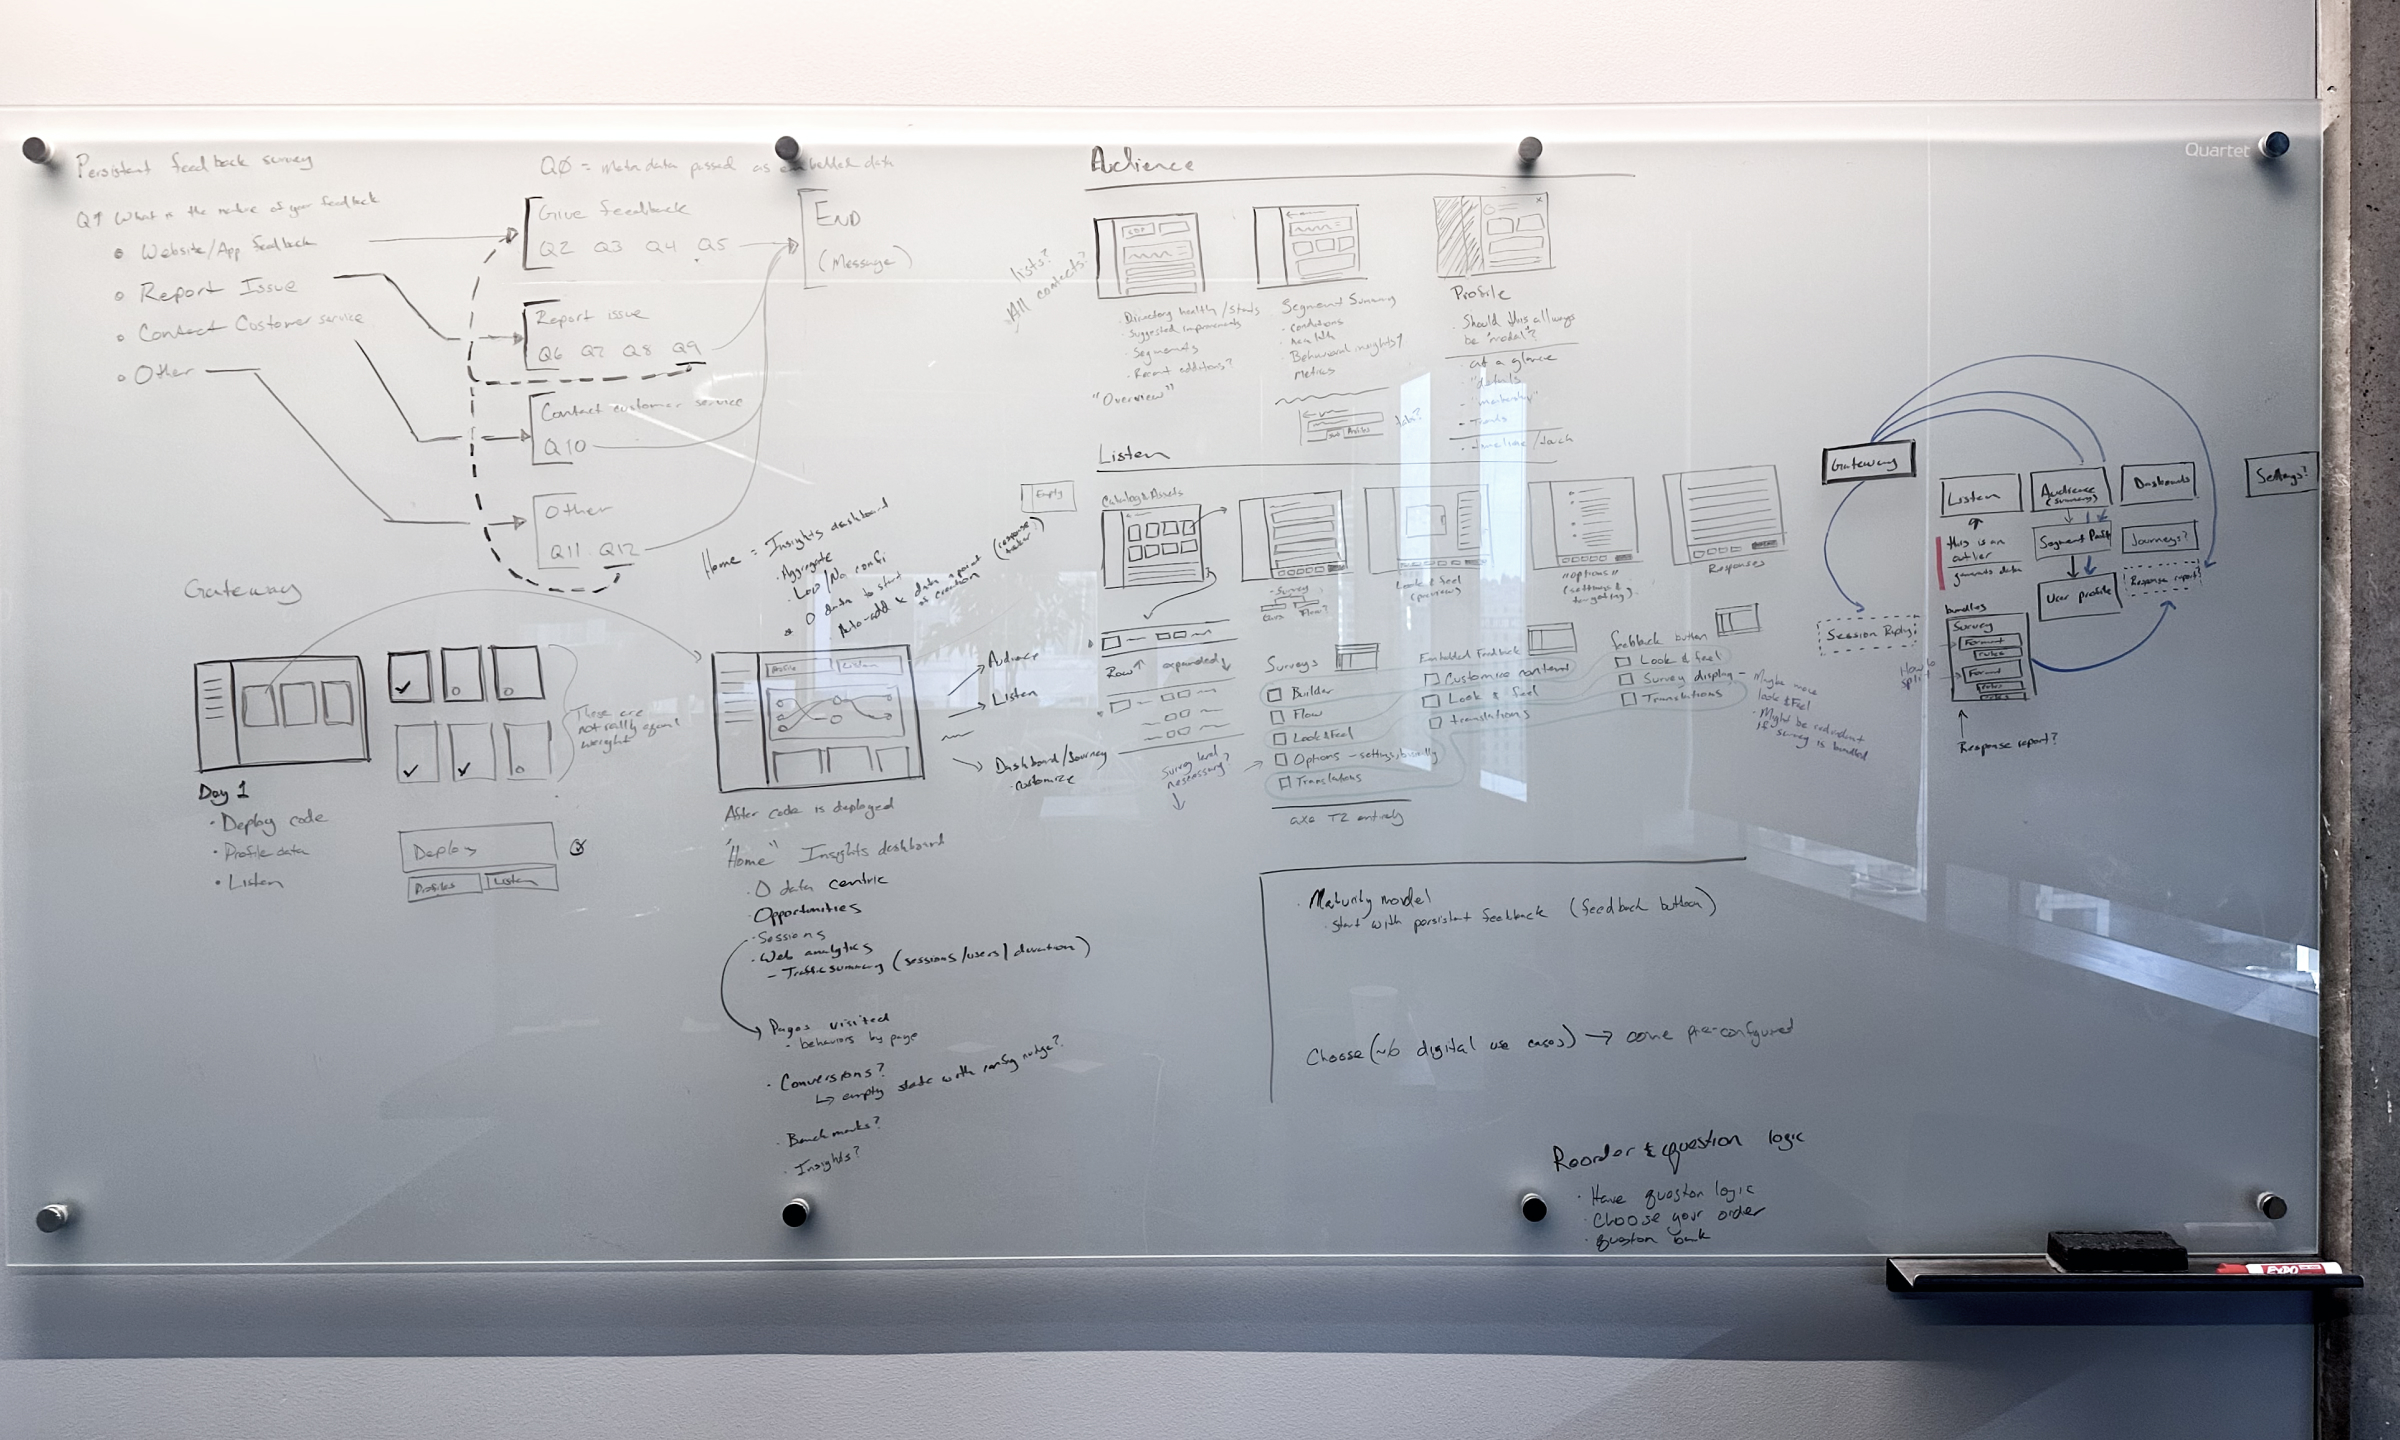 Persistent feedback survey
Q1 What is the nature of your feedback
Website/App feedback
Report Issue
Contact Customer service
Other
QØ = Meta data passed as embedded data
Give feedback
Q2 Q3 Q4 Q5
Report issue
Q6 Q7 Q8 Q9
Contact customer service
Q10
Other
Q11 Q12
END
(Message)
Gateway
Day 1
· Deploy code
· Profile data
· Listen
These are
not really equal
weight
Deploy
Profiles
Listen
Home = Insights dashboard
· Aggregate
· Low/No config
* 0 data to start
· Auto-add data
as creation
(response
Empty
Profile
Listen
Audience
Listen
Dashboard/Journey
· customize
After code is deployed
"Home" Insights dashboard
· 0 data centric
· Opportunities
· Sessions
· Web analytics
- Traffic summary (sessions/users/duration)
Pages visited
- behaviors by page
· Conversions?
↳ empty state with config nudge?
· Benchmarks?
· Insights?
Audience
lists?
All contacts?
· Directory health/stats
· Suggested improvements
· Segments
· Recent additions?
"Overview"
Segment Summary
· conditions
· Behavioral insights?
Metrics
Tabs?
Profile
· Should this always
be "modal"?
- at a glance
- "details"
- "membership"
- Trends
- timeline/
Listen
Catalog & Assets
Row↑ expanded↓
Survey
Flow?
Look & feel
(preview)
"Options"
(settings &
targeting)
Responses
Survey level
necessary?
Surveys
Builder
Flow
Look&Feel
Options – settings, basically
Translations
T2 entirely
Embedded Feedback
Customize content
Look & feel
translations
feedback button
Look & feel
Survey display –
Translations
· Maybe more
look & Feel
· Might be redundant
if survey is bundled
· Maturity model
· start with persistent feedback (feedback button)
Choose (~6 digital use cases) → come pre-configured
Reorder & question logic
· Have question logic
· Choose your order
· question bank
Gateway
Listen
this is an
outlier
generates data
Audience
(summary)
Segment
User profile
Dashboards
Journeys?
Response report?
Settings?
Session Replay
bundles
Survey
Format
rules
Format
rules
rules
How to
split?
Response report?
Quartet
EXPO